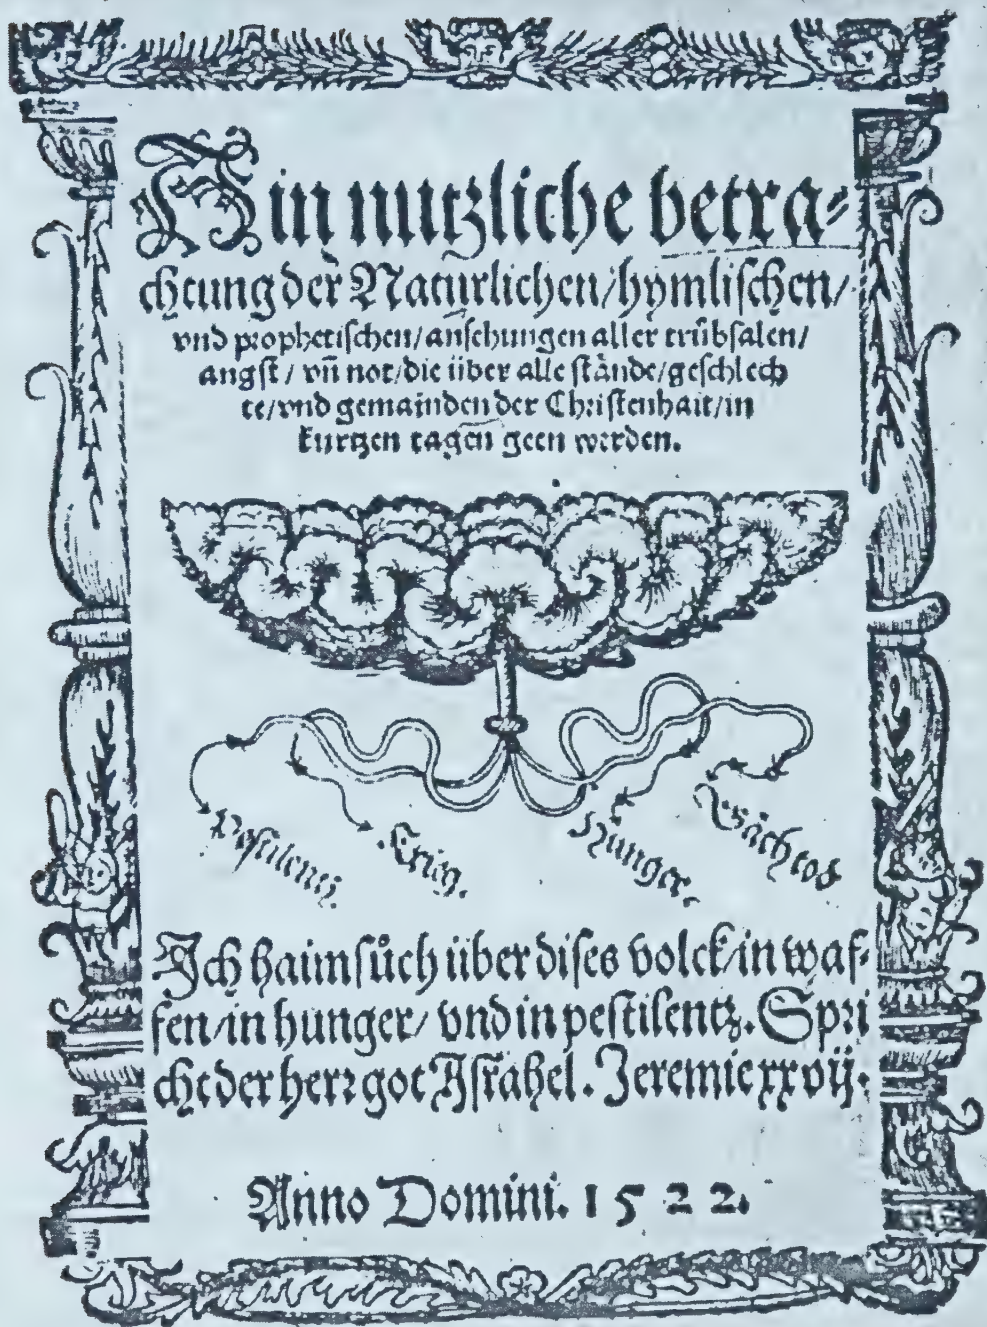 Ein nutzliche betra⸗
chtung der Natürlichen/hymlischen/
vnd prophetischen/ansehungen aller trübsalen/
angst/ vñ not/die über alle stånde/geschlech
te/vnd gemainden der Christenhait/in
kurtzen tagen geen werden.
Pestilentz.
Krieg.
Hunger.
Gåch tod
Ich haimsůch über dises volck/in waf⸗
fen/in hunger/ vnd in pestilentz. Spri
cht der herr got Israhel. Jeremie xxvij.
Anno Domini. 1522.